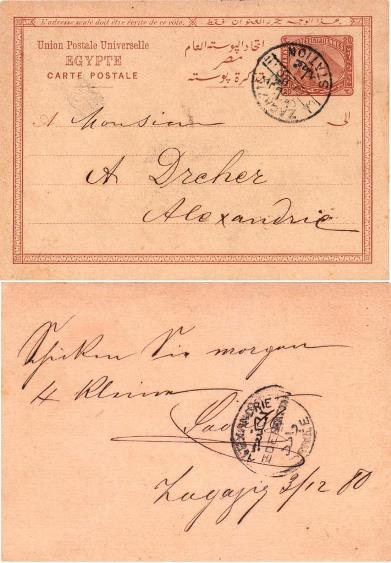 L'adresse seule doit être écrite de ce côté.
هذا الوجه محرر العنوان فقط
Union Postale Universelle
EGYPTE
CARTE POSTALE
اتحاد البوستة العام
مصر
تذكرة بوستة
A Monsieur
الى
A Dreher
Alexandrie
Schicken Sie morgen
4 kleine
ALEXANDRIE
Zagazig 3/12 80